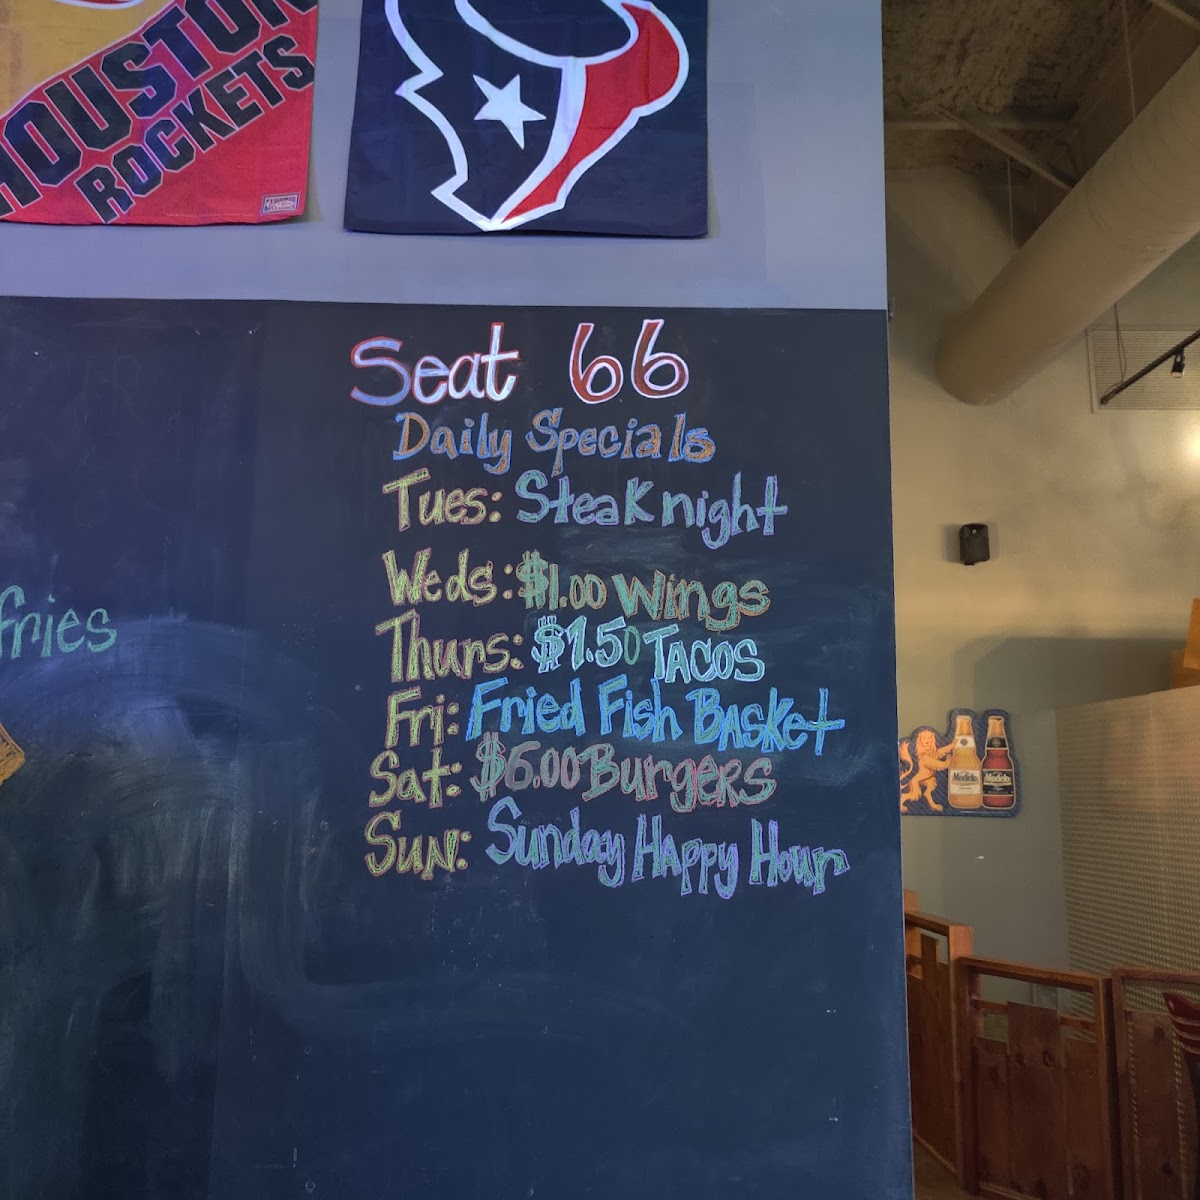 HOUSTON
ROCKETS
Seat 66
Daily Specials
Tues: Steak night
Weds: $1.00 Wings
Thurs: $1.50 TACOS
Fri: Fried Fish BASket
Sat: $6.00 BurgeRS
SuN: Sunday HAppy Hour
fries
Modelo
Modelo